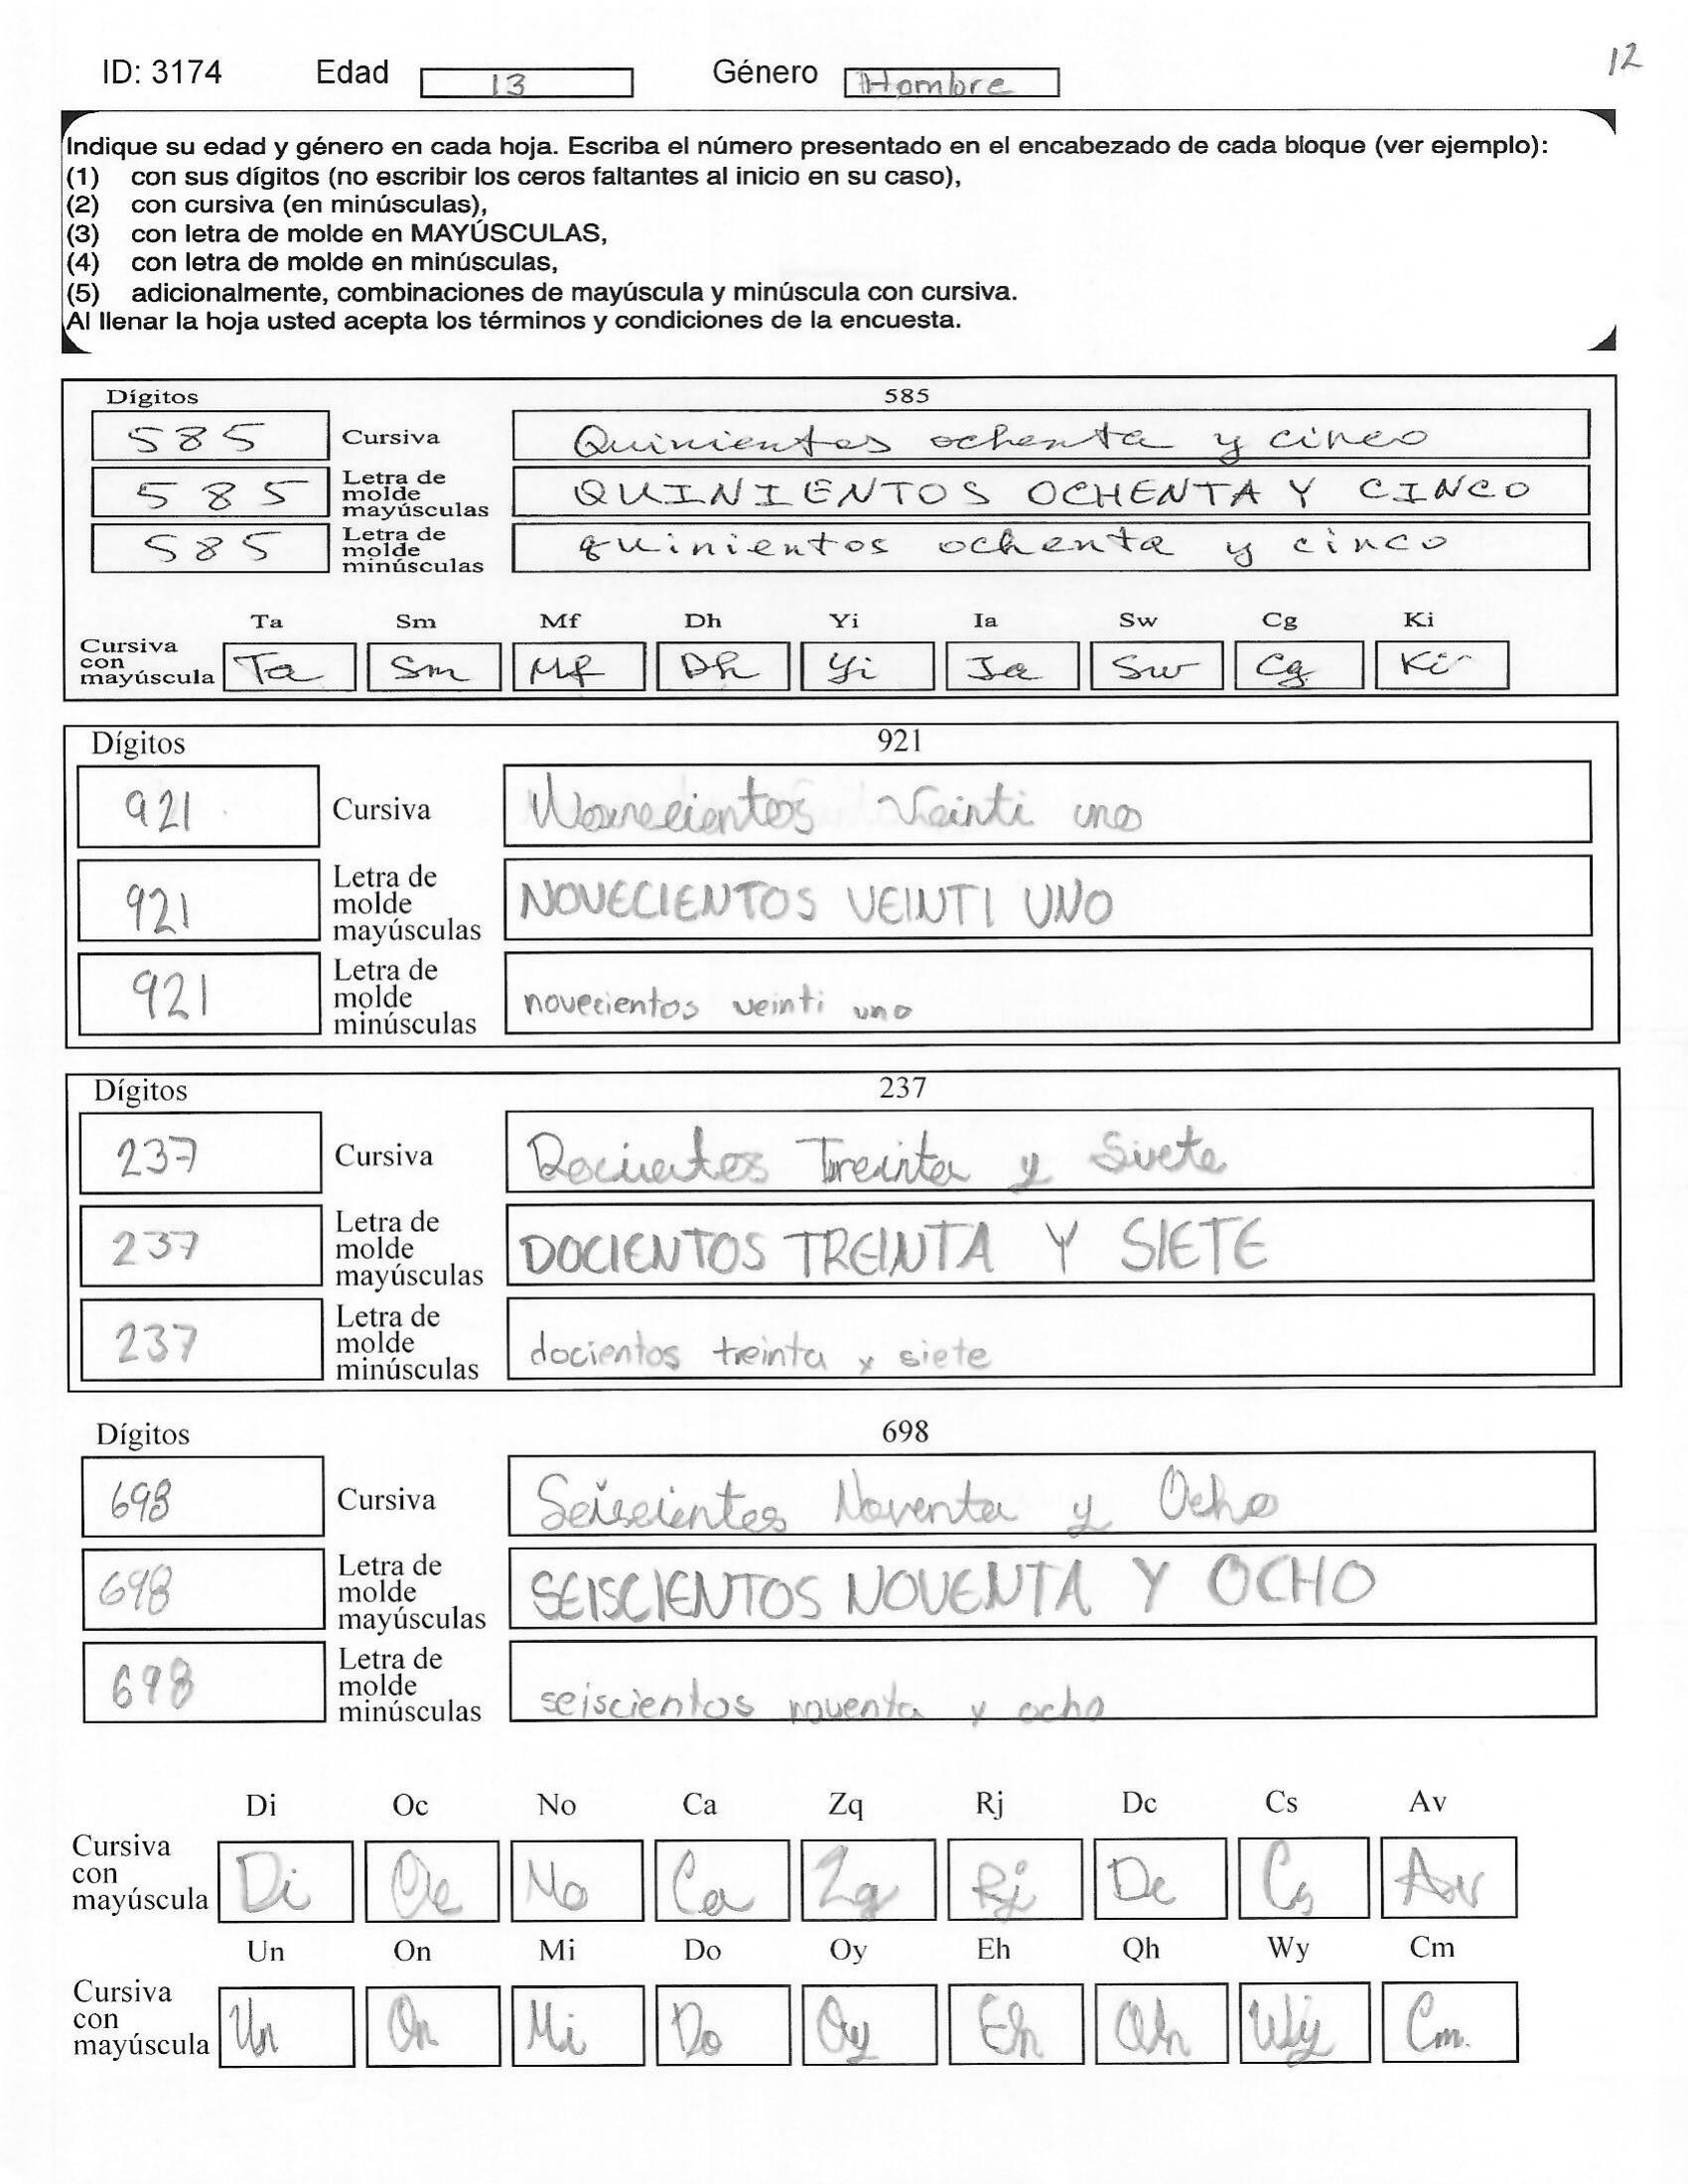 ID: 3174 Edad 13 Género Hombre 12
Indique su edad y género en cada hoja. Escriba el número presentado en el encabezado de cada bloque (ver ejemplo):
(1) con sus dígitos (no escribir los ceros faltantes al inicio en su caso),
(2) con cursiva (en minúsculas),
(3) con letra de molde en MAYÚSCULAS,
(4) con letra de molde en minúsculas,
(5) adicionalmente, combinaciones de mayúscula y minúscula con cursiva.
Al llenar la hoja usted acepta los términos y condiciones de la encuesta.
Dígitos 585
585 Cursiva Quinientos ochenta y cinco
585 Letra de molde mayúsculas QUINIENTOS OCHENTA Y CINCO
585 Letra de molde minúsculas quinientos ochenta y cinco
Ta Sm Mf Dh Yi Ia Sw Cg Ki
Cursiva con mayúscula Ta Sm Mf Dh Yi Ia Sw Cg Ki
Dígitos 921
921 Cursiva Novecientos Veinti uno
921 Letra de molde mayúsculas NOVECIENTOS VEINTI UNO
921 Letra de molde minúsculas novecientos veinti uno
Dígitos 237
237 Cursiva Docientos Treinta y Siete
237 Letra de molde mayúsculas DOCIENTOS TREINTA Y SIETE
237 Letra de molde minúsculas docientos treinta y siete
Dígitos 698
698 Cursiva Seiscientos Noventa y Ocho
698 Letra de molde mayúsculas SEISCIENTOS NOVENTA Y OCHO
698 Letra de molde minúsculas seiscientos noventa y ocho
Di Oc No Ca Zq Rj Dc Cs Av
Cursiva con mayúscula Di Oc No Ca Zq Rj Dc Cs Av
Un On Mi Do Oy Eh Qh Wy Cm
Cursiva con mayúscula Un On Mi Do Oy Eh Qh Wy Cm